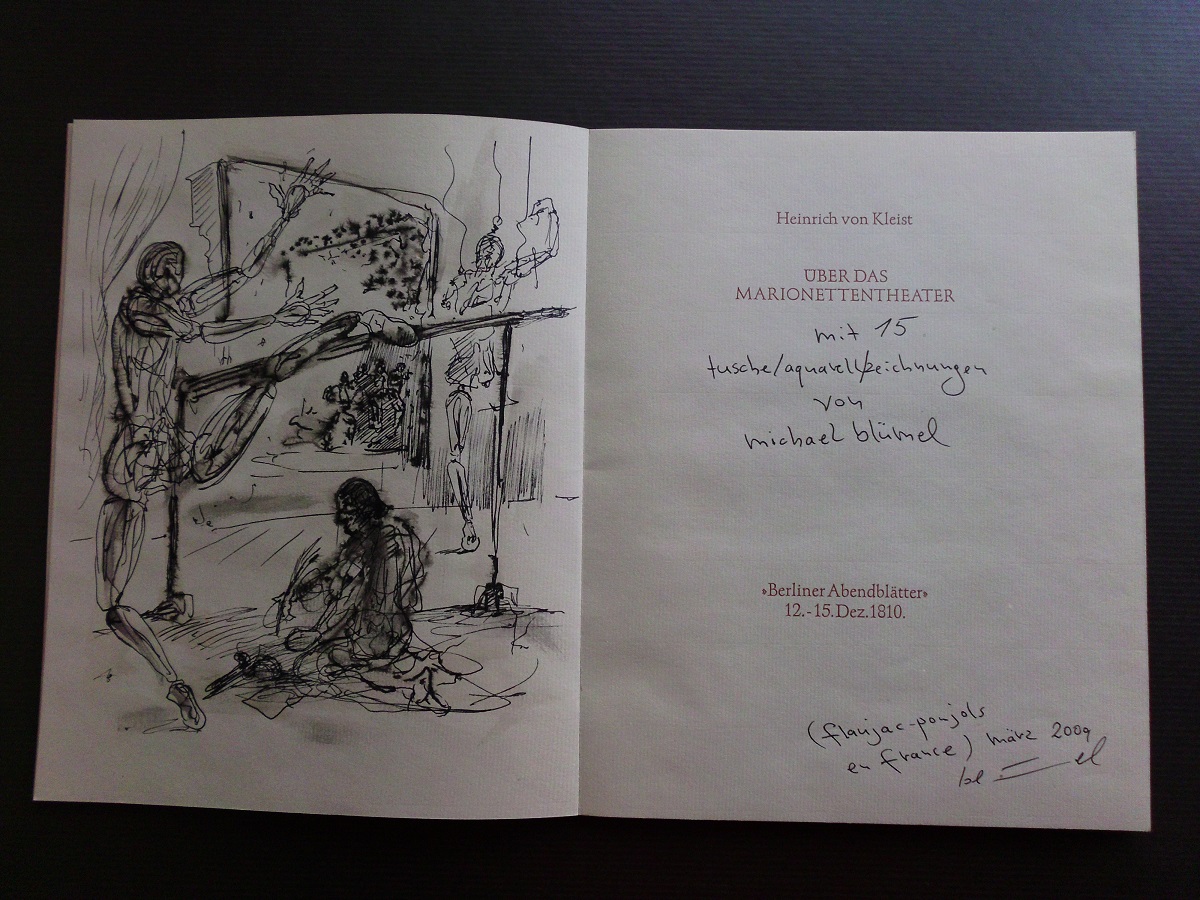 Heinrich von Kleist
ÜBER DAS
MARIONETTENTHEATER
mit 15
tusche/aquarell/zeichnungen
von
michael blümel
»Berliner Abendblätter«
12.-15. Dez. 1810.
(flaujac-poujols
en france) märz 2009